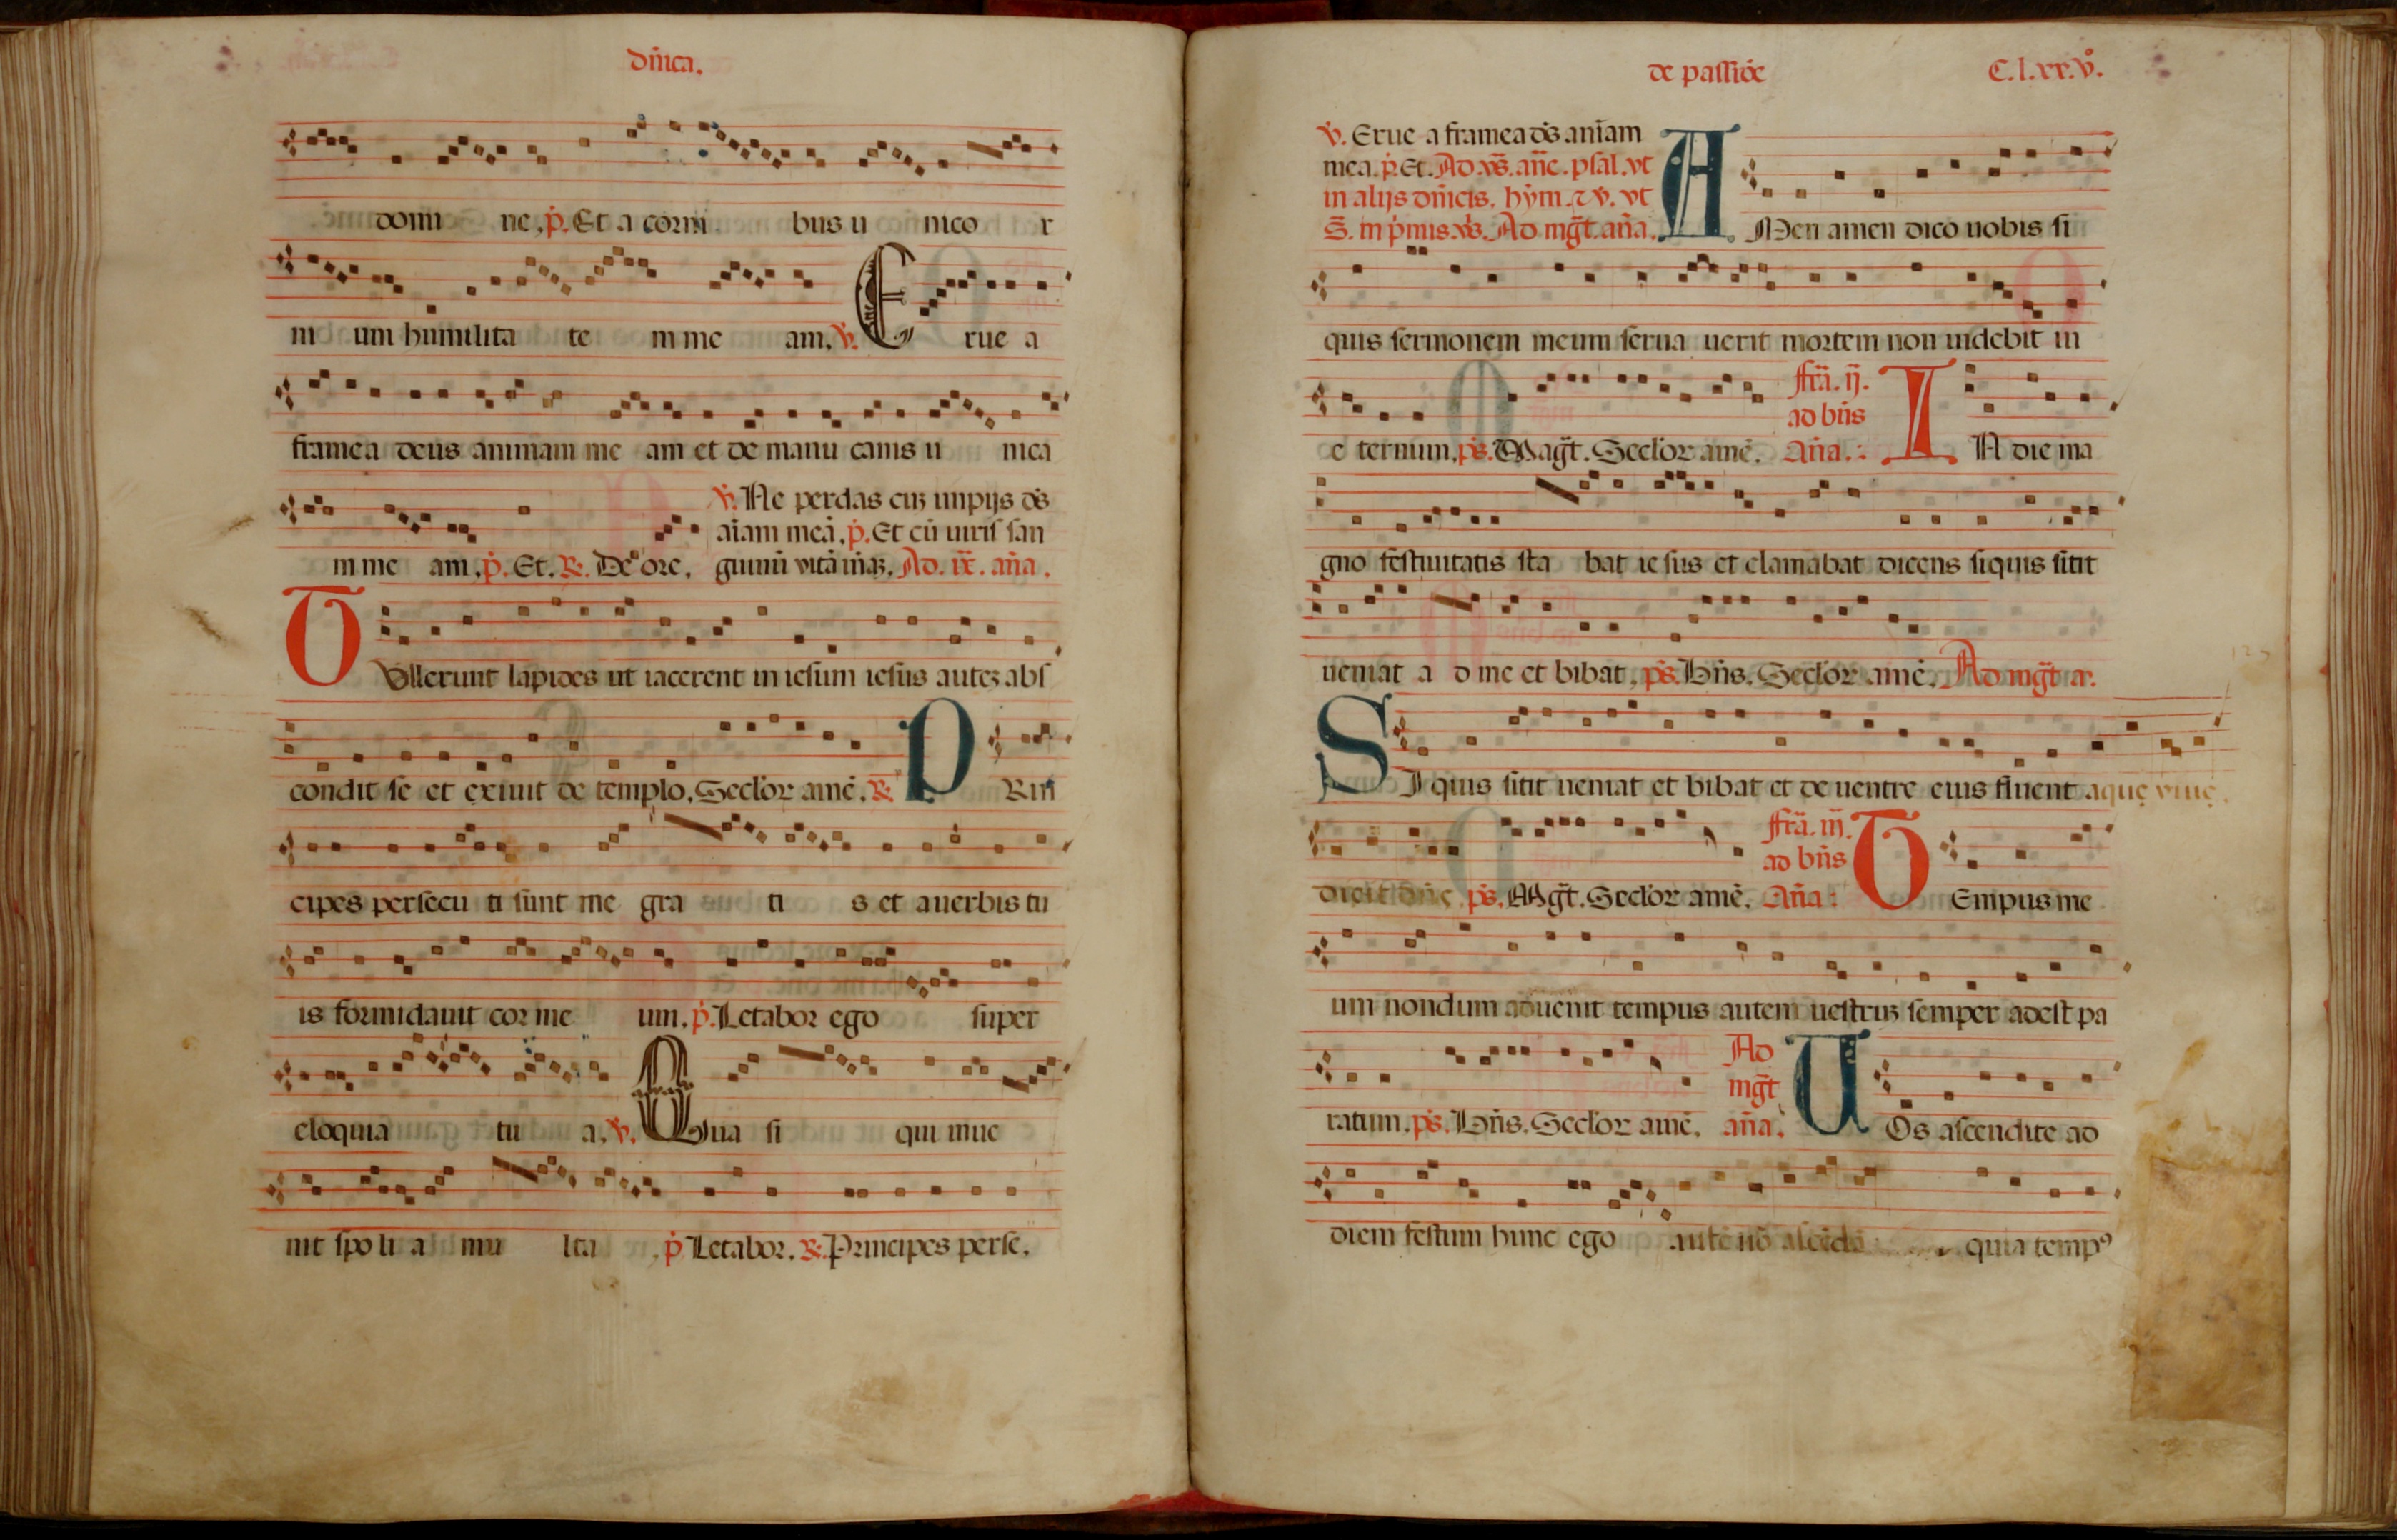 dn̄ica.
domi ne, p̄. Et a corni bus u nico r
ni um humilita te m me am. v̄. E rue a
framea deus animam me am et de manu canis u nica
v̄. Ne perdas cuꝫ impijs ds̄
aīam meā. p̄. Et cū uiris san
m me am. p̄. Et. R. De ore. guinū vitā
Ad. ix. an̄a.
T Vllerunt lapides ut iacerent in iesum iesus auteꝫ abs
condit se et exiuit de templo. Seclor amē. R. P Rin
cipes persecu ti sunt me gra ti s et a uerbis tu
is formidauit cor me um. p̄. Letabor ego super
eloquia tu a. v̄. Q Qua si qui inue
nit spo li a mu lta p̄ Letabor. R. Principes perse.
de passiōe C.l.xx.v̊.
v̄. Erue a framea ds̄ anīam
mea. p̄. Et. Ad. vs̄. an̄e. psal. vt
in alijs dn̄icis. hym. ⁊ v̄. vt
S̄. in p̄mis. vs̄. Ad mḡt. an̄a. A Men amen dico uobis si
quis sermonem meum serua uerit mortem non uidebit in
fr̄a. ij.
ad bn̄s
e ternum. ps̄. Magt̄. Seclor amē. An̄a. I N die ma
gno festiuitatis sta bat ie sus et clamabat dicens siquis sitit
ueniat a d me et bibat. ps̄. Bn̄s. Seclor amē. Ad mḡt a.
S I quis sitit ueniat et bibat et de uentre eius fluent aquę viuę.
fr̄a. iij.
ad bn̄s
dicit dn̄s ps̄. Mḡt. Seclor amē. An̄a: T Empus me
um nondum aduenit tempus autem uestruꝫ semper adest pa
Ad
mḡt
ratum. ps̄. Bn̄s. Seclor amē. an̄a. U Os ascendite ad
diem festum hunc ego autē nō ascēdā quia tempꝰ